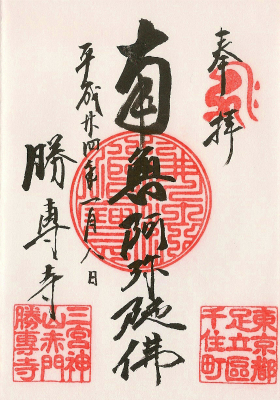 奉拝
南無阿弥陀佛
平成廿四年一月八日
勝専寺
東京都
足立區
千住町
三宮神
山赤門
勝專寺